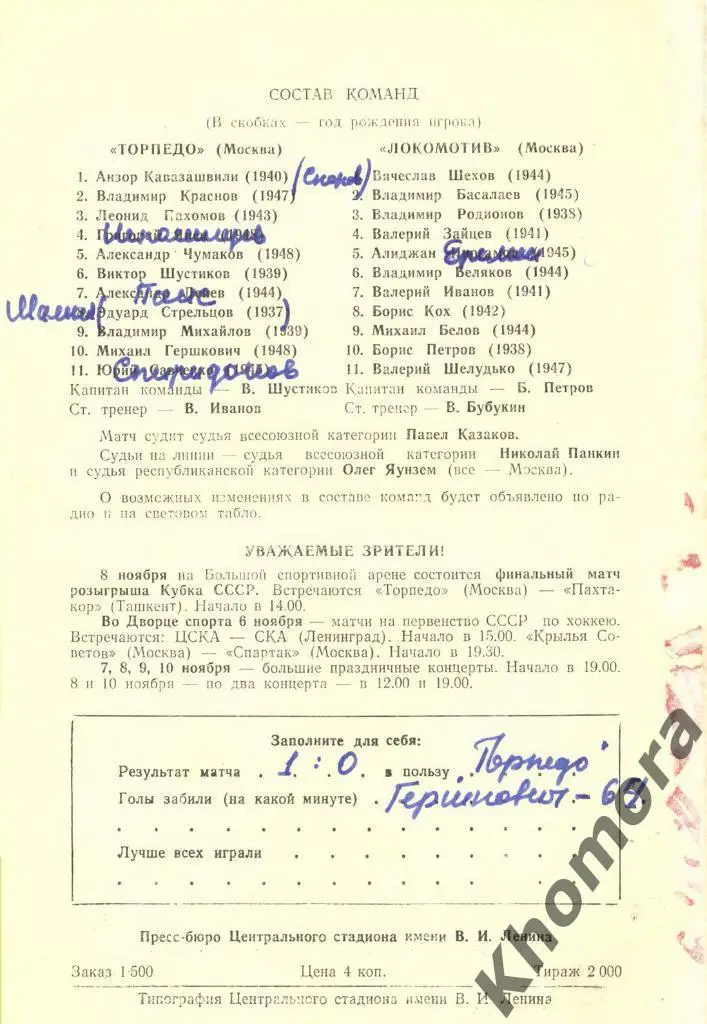 СОСТАВ КОМАНД
(В скобках — год рождения игрока)
«ТОРПЕДО» (Москва)
1. Анзор Кавазашвили (1940)
2. Владимир Краснов (1947)
3. Леонид Пахомов (1943)
4.
5. Александр Чумаков (1948)
6. Виктор Шустиков (1939)
7. Александр (1944)
8. Эдуард Стрельцов (1937)
9. Владимир Михайлов (1939)
10. Михаил Гершкович (1948)
11. Юрий
Капитан команды — В. Шустиков
Ст. тренер — В. Иванов
Паис
Спиридонов
«ЛОКОМОТИВ» (Москва)
1. Вячеслав Шехов (1944)
2. Владимир Басалаев (1945)
3. Владимир Родионов (1938)
4. Валерий Зайцев (1941)
5. Алиджан (1945)
6. Владимир Веляков (1944)
7. Валерий Иванов (1941)
8. Борис Кох (1942)
9. Михаил Белов (1944)
10. Борис Петров (1938)
11. Валерий Шелудько (1947)
Капитан команды — Б. Петров
Ст. тренер — В. Бубукин
Матч судит судья всесоюзной категории Павел Казаков.
Судьи на линии — судья всесоюзной категории Николай Панкин
и судья республиканской категории Олег Яунзем (все — Москва).
О возможных изменениях в составе команд будет объявлено по ра-
дио и на световом табло.
УВАЖАЕМЫЕ ЗРИТЕЛИ!
8 ноября на Большой спортивной арене состоится финальный матч
розыгрыша Кубка СССР. Встречаются «Торпедо» (Москва) — «Пахта-
кор» (Ташкент). Начало в 14.00.
Во Дворце спорта 6 ноября — матчи на первенство СССР по хоккею.
Встречаются: ЦСКА — СКА (Ленинград). Начало в 15.00. «Крылья Со-
ветов» (Москва) — «Спартак» (Москва). Начало в 19.30.
7, 8, 9, 10 ноября — большие праздничные концерты. Начало в 19.00.
8 и 10 ноября — по два концерта — в 12.00 и 19.00.
Заполните для себя:
Результат матча 1:0 в пользу "Торпедо"
Голы забили (на какой минуте) Гершкович -
Лучше всех играли
Пресс-бюро Центрального стадиона имени В. И. Ленина
Заказ 1500 Цена 4 коп. Тираж 2000
Типография Центрального стадиона имени В. И. Ленина
Khomora